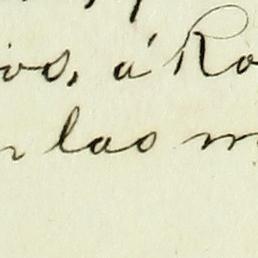 ios, á Ro
n las m